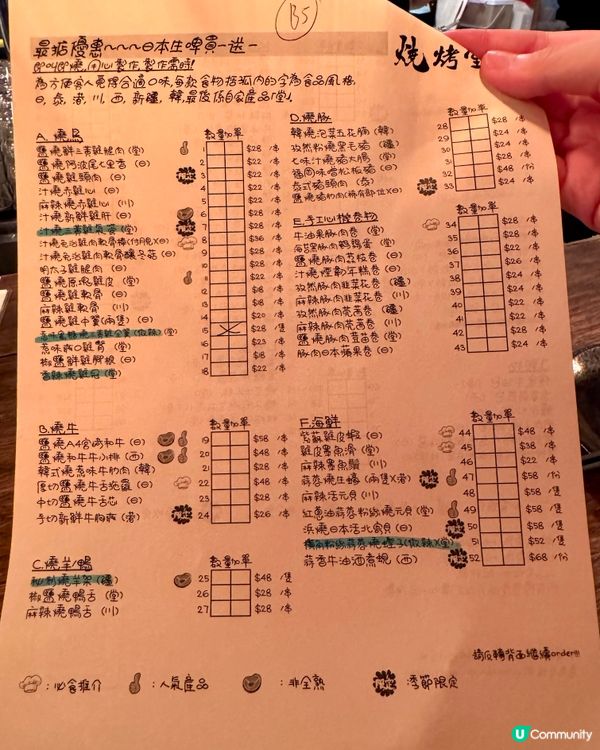 B5
最新優惠~~~日本生啤買一送一
即叫即燒,用心製作,製作需時!
為方便客人覺得合適口味,每款食物括弧內的字為食品風格,
日, 泰, 港, 川, 西, 新疆, 韓, 最後係自家產品「堂」.
燒烤堂
A. 燒鳥
數量 加單
鹽燒鮮三黃雞腿肉 (堂) 1 $28 /串
鹽燒阿波尾七里香 (日) 2 $22 /串
鹽燒雞頸肉 (日) 3 $22 /串
汁燒赤雞心 (日) 4 $22 /串
麻辣燒赤雞心 (川) 5 $22 /串
汁燒新鮮雞肝 (日) 6 $28 /串
汁燒三黃雞 (堂) 7 $28 /串
8 $36 /串
9 $28 /串
明太子雞腿肉 (日) 10 $28 /串
鹽燒原塊雞皮 (堂) 11 $22 /串
鹽燒雞軟骨 (日) 12 $8 /串
麻辣雞軟骨 (川) 13 $8 /串
鹽燒雞中翼(兩隻) (日) 14 $20 /串
15 $28 /隻
惹味 雞腎 (堂) 16 $23 /串
椒鹽鮮雞腳根 (日) 17 $8 /串
香辣燒雞冠 (堂) 18 $22 /串
B. 燒牛
數量 加單
鹽燒A4宮崎和牛 (日) 19 $58 /串
鹽燒和牛牛小排 (西) 20 $48 /串
韓式燒惹味牛肋肉 (韓) 21 $28 /串
厚切鹽燒牛舌 (日) 22 $48 /串
中切鹽燒牛舌芯 (日) 23 $28 /串
手切新鮮牛胸 (港) 24 $26 /串
C. 燒羊/鴨
數量 加單
秘制燒羊架 (疆) 25 $48 /隻
椒鹽燒鴨舌 (堂) 26 $28 /串
麻辣燒鴨舌 (川) 27 $28 /串
D. 燒豚
數量 加單
韓燒泡菜五花腩 (韓) 28 $28 /串
孜然粉燒黑毛豬 (疆) 29 $28 /串
七味汁燒豬大腸 (堂) 30 $24 /串
福岡味噌松板豬 (日) 31 $24 /串
泰式豬頸肉 (泰) 32 $48 /份
鹽燒豬肋肉(稀有部位) (日) 33 $24 /串
E. 手工心機卷物
數量 加單
牛油果豚肉卷 (堂) 34 $28 /串
海苔黑豚肉鵪鶉蛋 (堂) 35 $28 /串
鹽燒豚肉荔枝卷 (日) 36 $22 /串
汁燒煙韌年糕卷 (日) 37 $26 /串
孜然豚肉韭菜花卷 (疆) 38 $24 /串
麻辣豚肉韭菜花卷 (川) 39 $24 /串
孜然豚肉芫茜卷 (疆) 40 $24 /串
麻辣豚肉芫茜卷 (川) 41 $24 /串
鹽燒豚肉苗卷 (堂) 42 $28 /串
豚肉日本蘋果卷 (日) 43 $24 /串
F. 海鮮
數量 加單
紫蘇雞皮蝦 (日) 44 $48 /串
雞皮魚滑 (堂) 45 $38 /串
麻辣魚 (川) 46 $28 /串
蒜蓉燒生蠔 (兩隻) (港) 47 $48 /串
麻辣活元貝 (川) 48 $58 /隻
紅蔥油蒜蓉粉絲燒元貝 (堂) 49 $58 /隻
浜燒日本活北寄貝 (日) 50 $58 /隻
粉絲蒜蓉燒蟶子(微辣) (堂) 51 $52 /隻
蒜香牛油酒煮蜆 (西) 52 $68 /份
請反轉背面繼續order!!!
:必食推介 :人氣產品 :非全熟 :季節限定
U Community